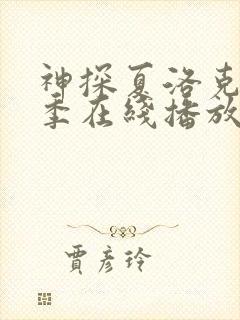 神探夏洛克
季在綫播放
賈彥玲